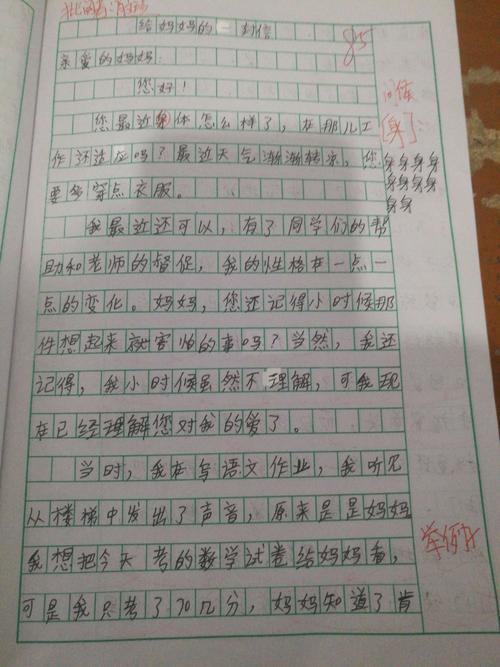 给妈妈的一封信
85
亲爱的妈妈:
您好!
问候
您最近身体怎么样了,在那儿工
[身]:
作还适应吗?最近天气渐渐转凉,您
身身身身
要多穿点衣服。
身身身身
身身
我最近还可以,有了同学们的帮
助和老师的督促,我的性格在一点一
点的变化。妈妈,您还记得小时候那
件想起来就害怕的事吗?当然,我还
记得,我小时候虽然不理解,可我现
在已经理解您对我的爱了。
当时,我在写语文作业,我听见
从楼梯中发出了声音,原来是是妈妈。
我想把今天考的数学试卷给妈妈看,
举例子
可是我只考了70几分,妈妈知道了肯